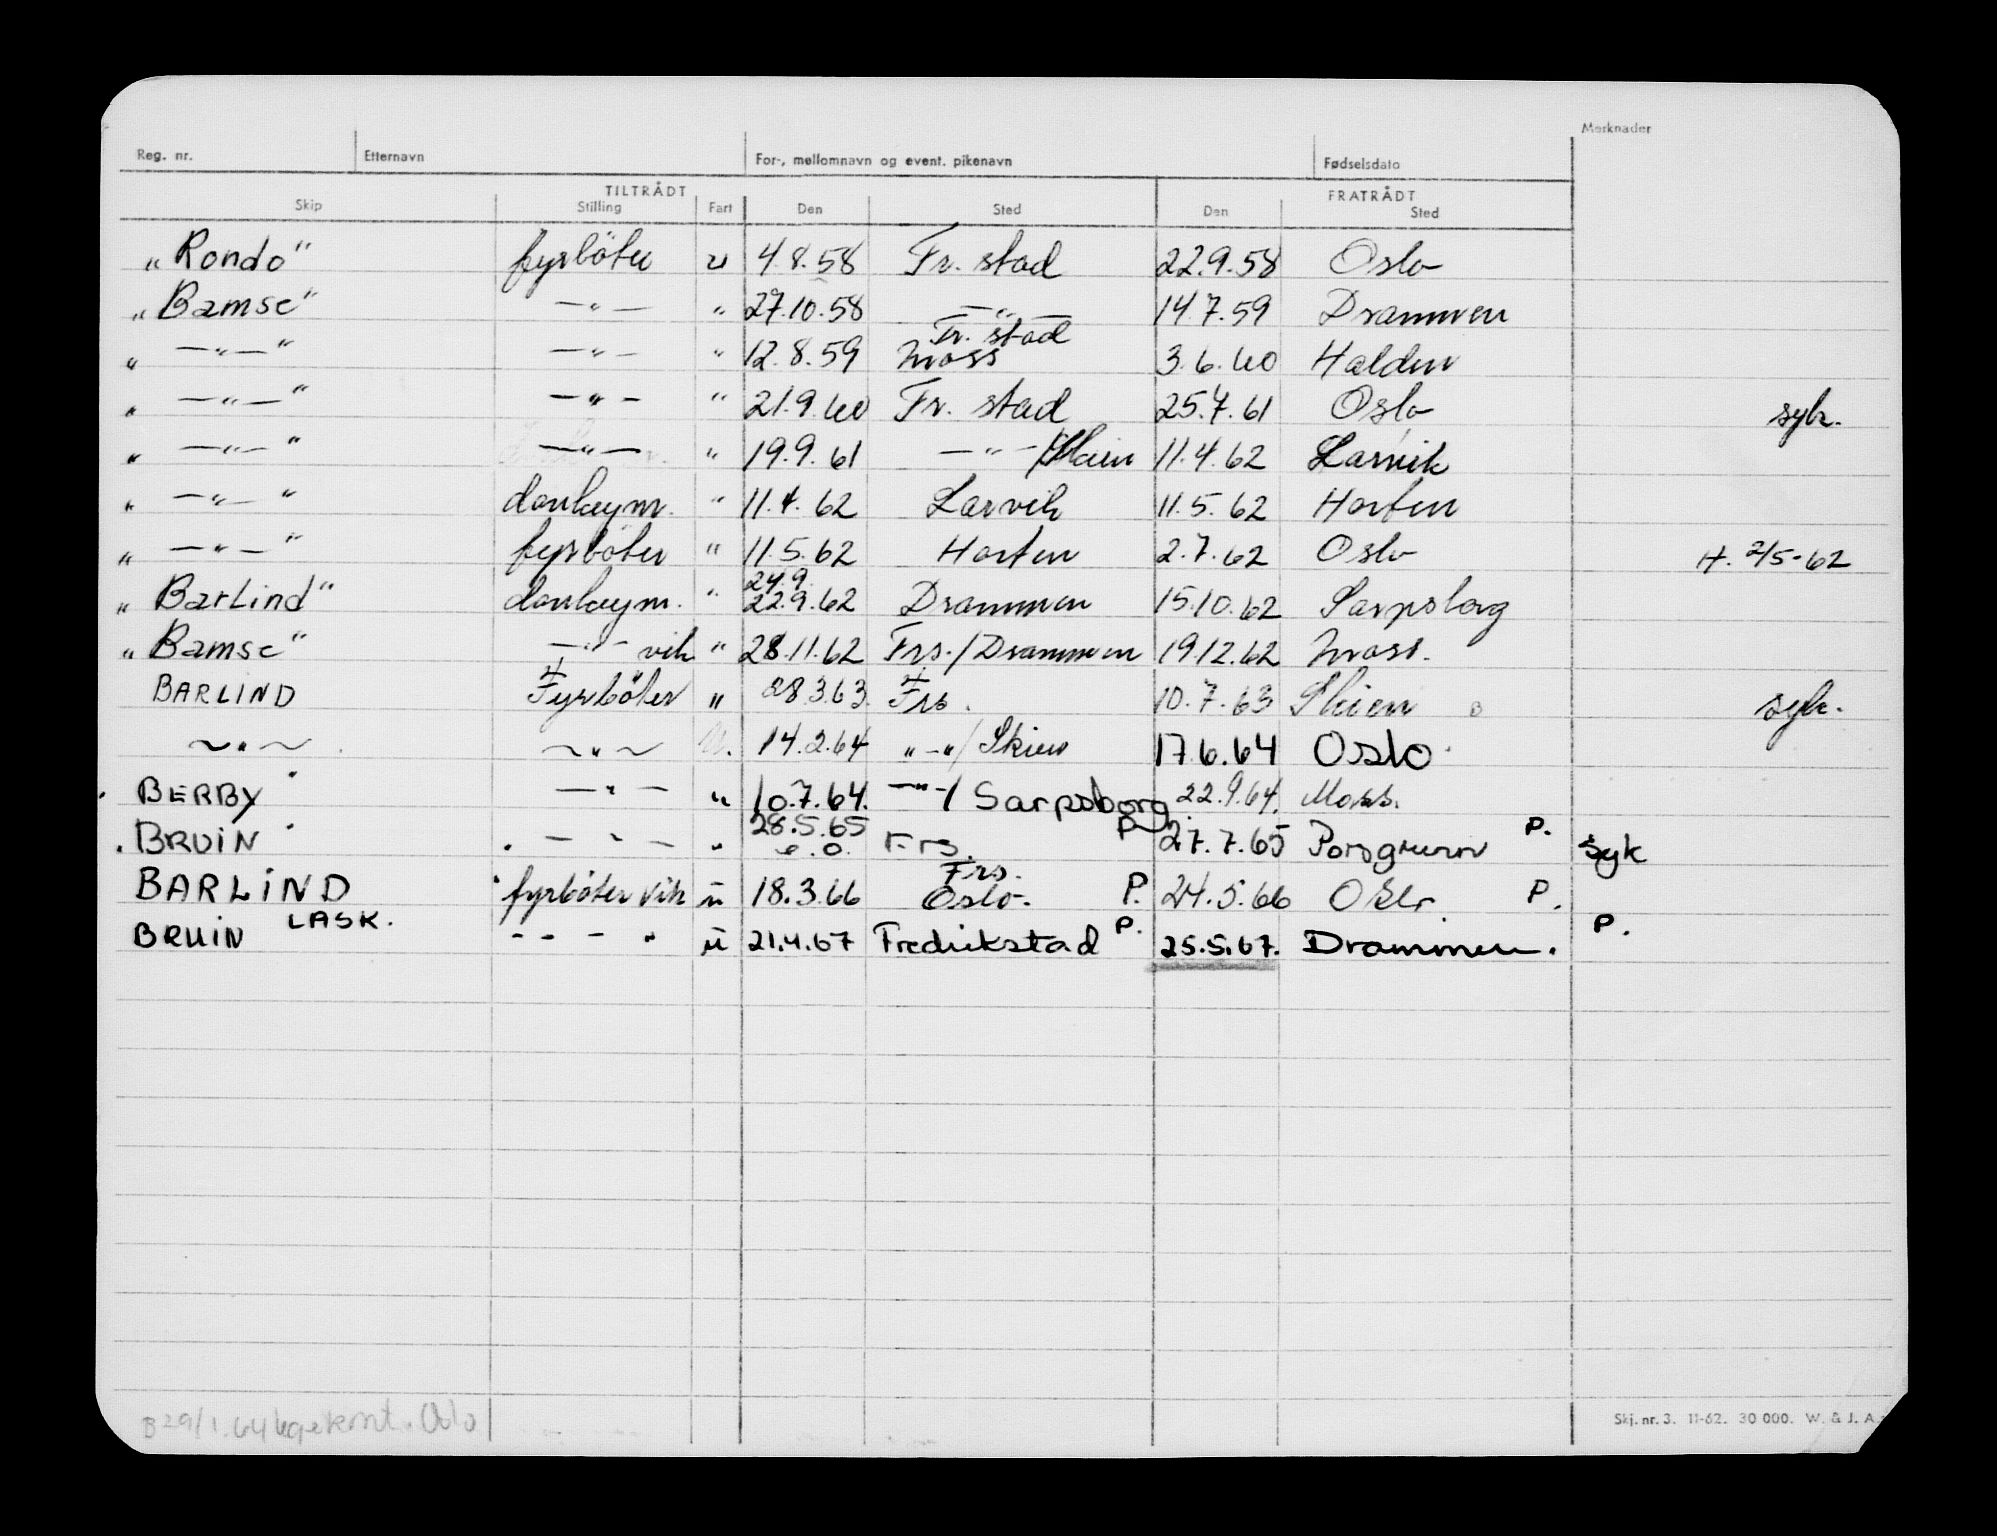 Merknader
Reg. nr. Etternavn For-, mellomnavn og event. pikenavn Fødselsdato
TILTRÅDT FRATRÅDT
Skip Stilling Fart Den Sted Den Sted
„Rondo" fyrböter u 4.8.58 Fr. stad 22.9.58 Oslo
„Bamse" —"— " 27.10.58 —"— 14.7.59 Drammen
Fr. stad
„ —"—" —"— " 12.8.59 Moss 3.6.60 Halden
„ —"—" —"— " 21.9.60 Fr. stad 25.7.61 Oslo syk.
„ —"—" —"— " 19.9.61 —"—/Skien 11.4.62 Larvik
„ —"—" donkeym. " 11.4.62 Larvik 11.5.62 Horten
„ —"—" fyrböter " 11.5.62 Horten 2.7.62 Oslo H. 2/5-62
24.9.
„Barlind" donkeym. " 22.9.62 Drammen 15.10.62 Sarpsborg
„Bamse" —"— vik " 28.11.62 Frs./Drammen 19.12.62 Moss.
BARLIND Fyrböter " 28.3.63. Frs. 10.7.63 Skien B syk.
~"~. ~"~ U. 14.2.64 "-"/Skien 17.6.64 Oslo.
BERBY —"— " 10.7.64. —"—/Sarpsborg 22.9.64. Moss.
28.5.65 P.
BRUIN —"— " Frs. 27.7.65 Porsgrunn P. Syk
Frs.
BARLIND fyrböter vik ü 18.3.66 Oslo. P. 24.5.66 Oslo. P.
LASK. P. P.
BRUIN - - - " ü 21.4.67 Fredrikstad 25.5.67. Drammen.
B 29/1.64 Oslo
Skj. nr. 3. 11-62. 30 000. W. & J. A.